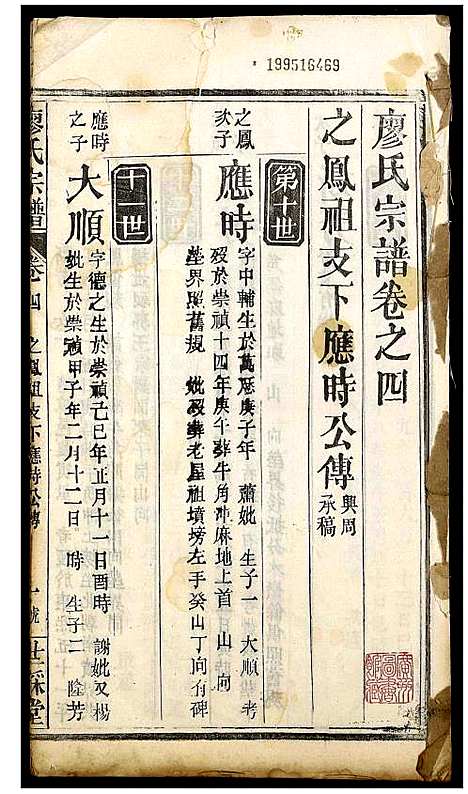 199516469
廖氏宗譜卷之四
之鳳祖支下應時公傳 興周承稿
第十世
之鳳次子
應時
字中輔生於萬历庚子年 蕭妣 生子一 大順考
殁於崇禎十四年庚午葬牛角冲麻地上首 山 向
塋界照舊規 妣殁葬老屋祖墳塝左手癸山丁向有碑
十一世
應時之子
大順
字德之生於崇禎己巳年正月十一日酉時 謝妣又楊
妣生於崇禎甲子年二月十二日 時 生子二 隆芳
廖氏宗譜 卷四 之鳳祖支下應時公傳 一號